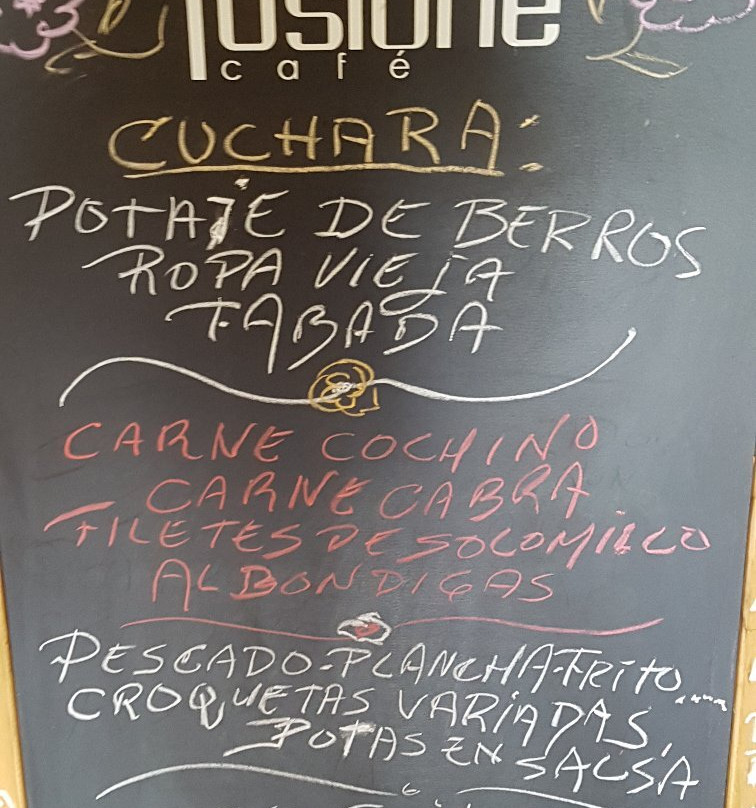 fusione
café
CUCHARA:
POTAJE DE BERROS
ROPA VIEJA
FABADA
CARNE COCHINO
CARNE CABRA
FILETES DE SOLOMILLO
ALBONDIGAS
PESCADO-PLANCHA-FRITO....
CROQUETAS VARIADAS,
POTAS EN SALSA